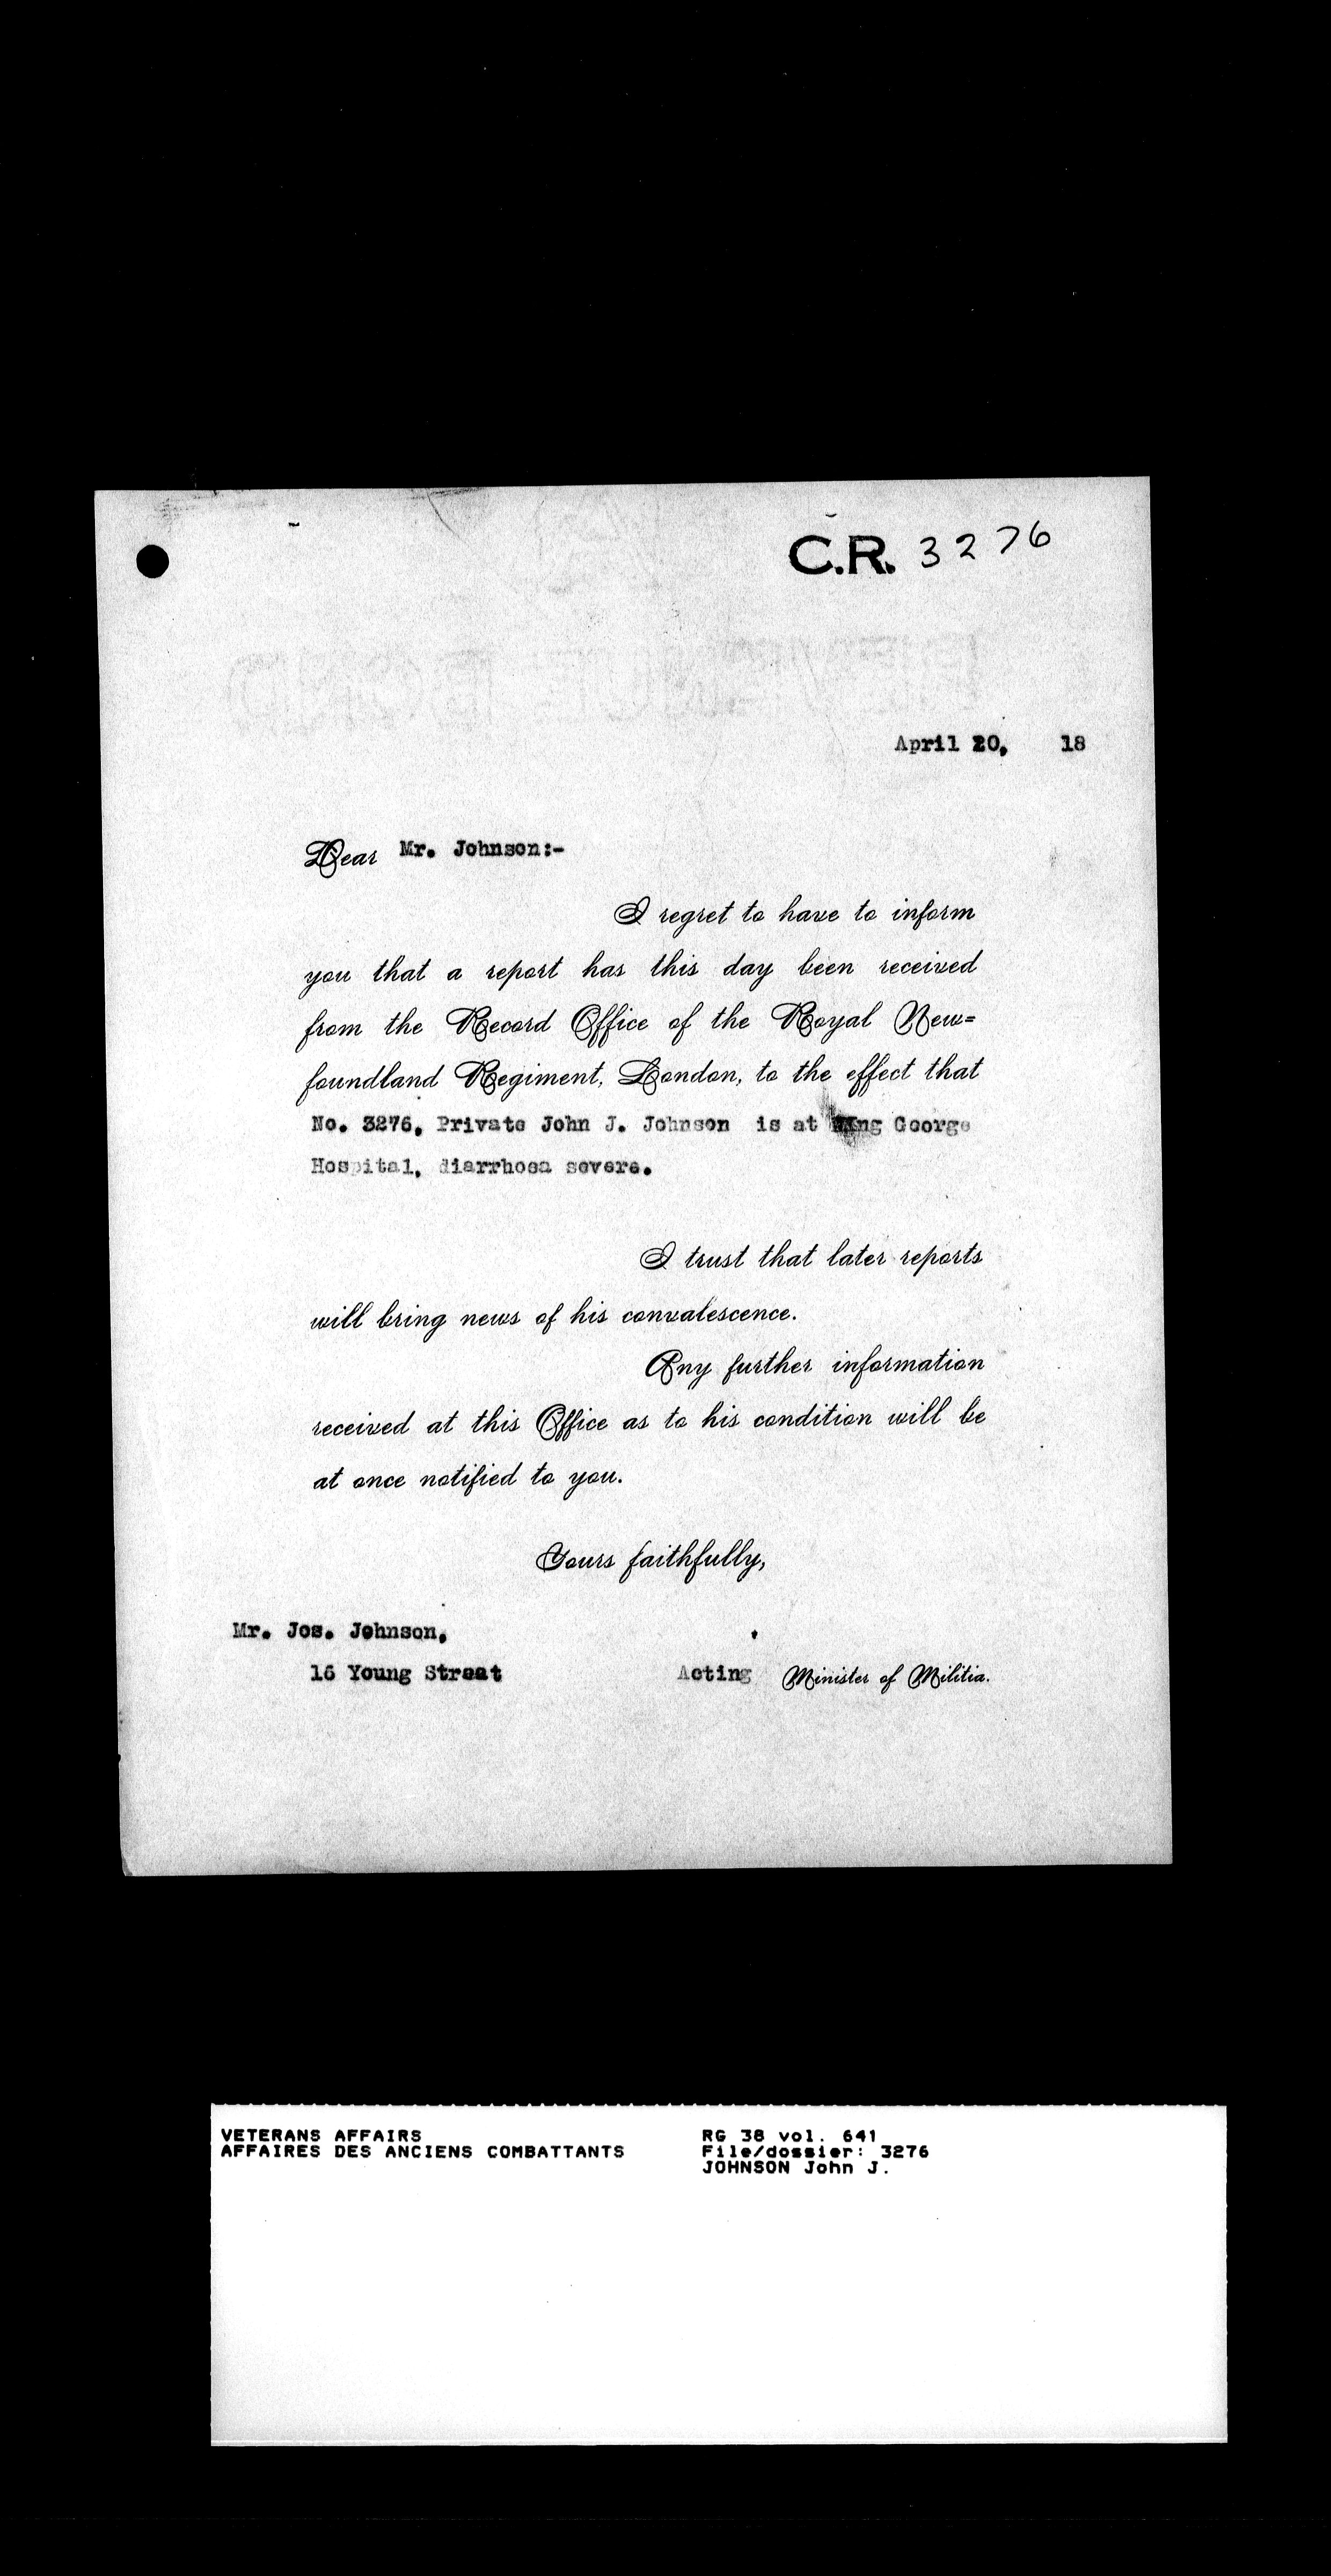 C.R. 3276
April 20, 18
Dear Mr. Johnson:-
I regret to have to inform
you that a report has this day been received
from the Record Office of the Royal New=
foundland Regiment, London, to the effect that
No. 3276, Private John J. Johnson is at King George
Hospital, diarrhoea severe.
I trust that later reports
will bring news of his convalescence.
Any further information
received at this Office as to his condition will be
at once notified to you.
Yours faithfully,
Mr. Jos. Johnson,
16 Young Street
Acting Minister of Militia.
VETERANS AFFAIRS
AFFAIRES DES ANCIENS COMBATTANTS
RG 38 vol. 641
File/dossier: 3276
JOHNSON John J.